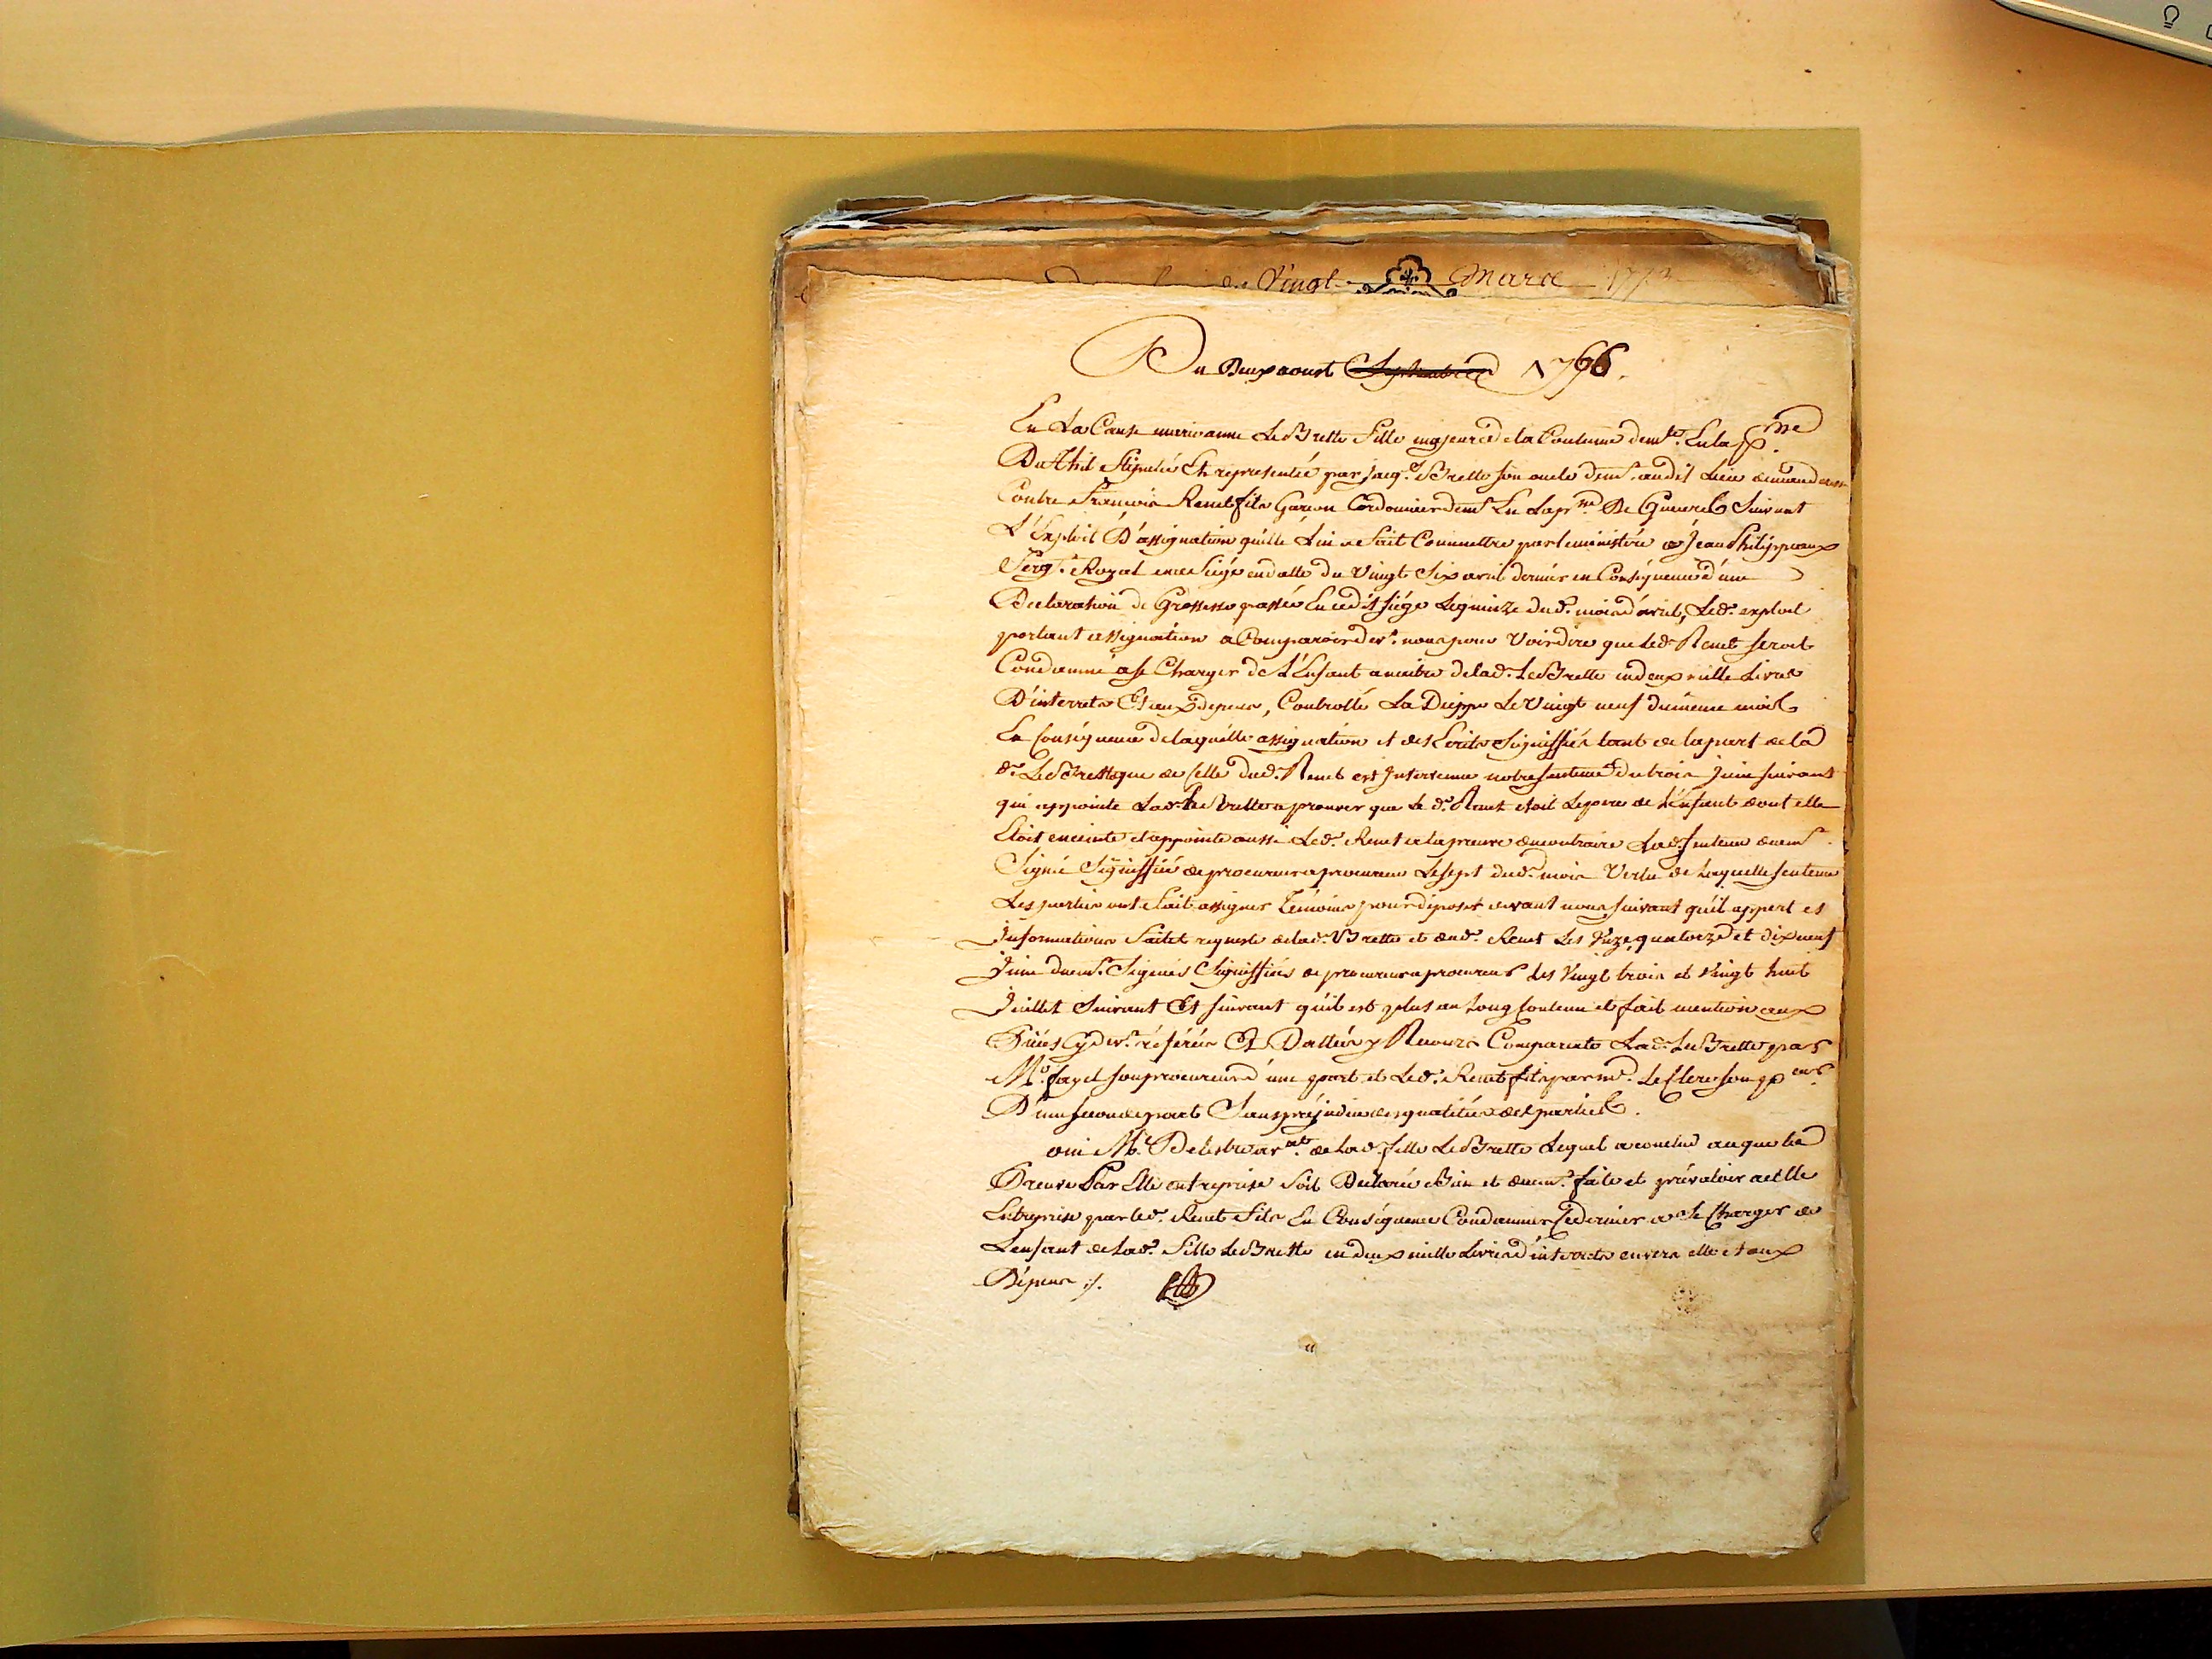 Vingt Mars 1773
Du Deux aoust Septembre 1766.
En La Cause marianne LeBrette fille majeure de la Coutume demte. En la psse
Du Thil Stipulée Et representée par Jacqs. LeBrette son oncle demt. audit Lieu demanderesse
Contre François Renet fils Garçon Cordonnier demt En La psse De Gueures Suivant
L'Exploit D'assignation qu'elle Lui a fait Commettre par le ministere de Jean Philippeaux
Sergt. Royal en ce Siége en datte du Vingt Six avril dernier en Conséquence d'une
Declaration de Grossesse passée En cedit siége Le quinze dud. mois d'avril, Led. exploit
portant assignation a Comparoir devt. nous pour Voir dire que led Renet seroit
Condamné a se Charger de L'Enfant a naitre de lad. LeBrette en deux mille Livres
D'interrets Et aux depens, Controllé La Dieppe Le Vingt neuf du même mois
En Conséquence de laquélle assignation et des Ecrits Signiffiés tant de la part de la
de. LeBrette que de Celle dud. Renet est Intervenue notre sentence du trois Juin suivant
qui appointe Lad. Le Brette a prouver que Le d. Renet étoit Le pere de L'énfant dont elle
Etoit enceinte et appointe aussi Led. Renet a la preuve au contraire Lad. sentence duemt.
Signée Signiffiée de procureur a procureur Le sept dud. mois Vertu de Laquelle sentence
Les parties ont Fait assigner Témoins pour déposer devant nous, suivant qu'il appert es
Informations Faites requeste de lad. LeBrette et dud. Renet Les Unze, quatorze et dix neuf
Juin duemt. Signées Signiffiées de procureur a procureur les Vingt trois et Vingt huit
Juillet Suivant Et suivant qu'il est plus au Long Contenu et fait mention aux
Piéces Cy devt. référées Et Dattées Comparante Lad. LeBrette par
Me. fayel son procureur d'une part, et Led. Renet fils par me. LeClerc son pcur.
D'une seconde part Sans préjudice des qualités des parties.
oui Me. Delestre avat. de Lad. fille LeBrette Lequel a conclud a ce que la
Preuve Par Elle entreprise Soit Declarée Bien et duemt. faite et prévaloir a celle
Entreprise par led. Renet Fils En Conséquence Condamner Ce dernier a Se Charger de
L'enfant de lad. Fille LeBrette en deux mille Livres d'intérets envers elle et aux
Dépens ./.